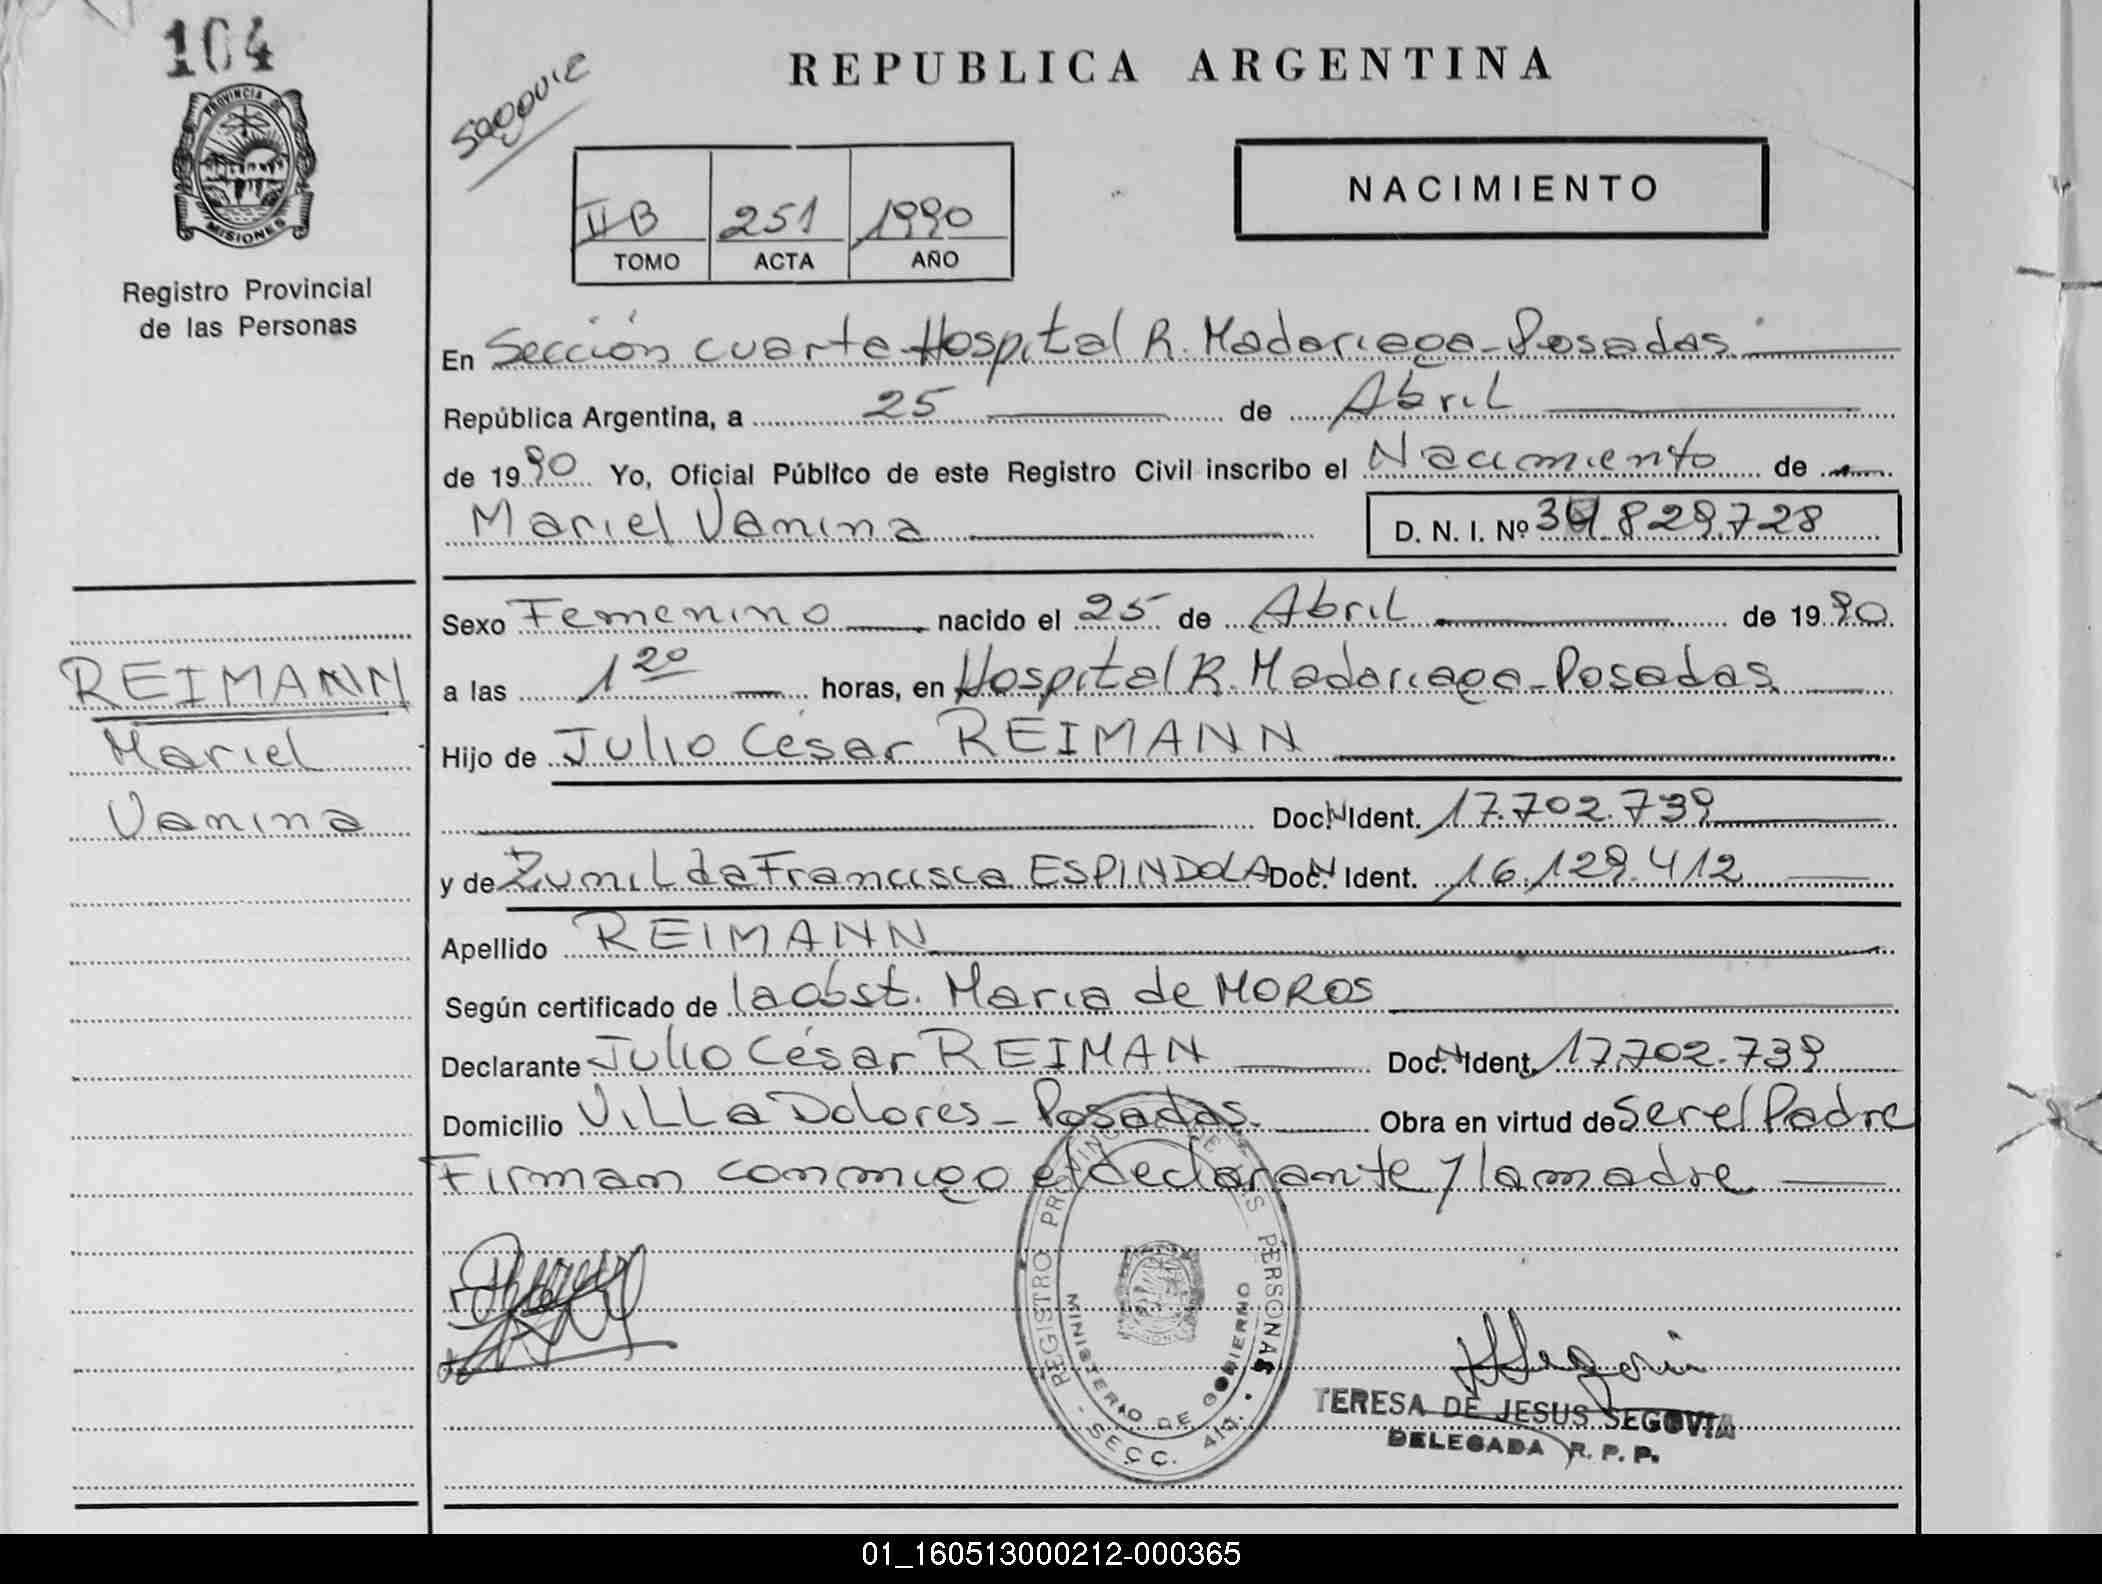 104
PROVINCIA DE
MISIONES
Registro Provincial
de las Personas
REPUBLICA ARGENTINA
NACIMIENTO
II B 251 1990
TOMO ACTA AÑO
En Sección cuarta Hospital R. Madariaga - Posadas
República Argentina, a 25 de Abril
de 1990 Yo, Oficial Público de este Registro Civil inscribo el Nacimiento de
Mariel Vanina D. N. I. Nº 34.829.728
Sexo Femenino nacido el 25 de Abril de 1990
a las 1 20 horas, en Hospital R. Madariaga - Posadas
Hijo de Julio César REIMANN
Doc. N Ident. 17.702.739
y de Zunilda Francisca ESPINDOLA Doc. N Ident. 16.129.412
Apellido REIMANN
Según certificado de la obst. Maria de MOROS
Declarante Julio César REIMAN Doc. N Ident. 17.702.739
Domicilio Villa Dolores - Posadas. Obra en virtud de Ser el Padre
Firman conmigo el declarante y la madre
REIMANN
Mariel
Vanina
REGISTRO PROVINCIAL DE LAS PERSONAS
MINISTERIO DE GOBIERNO
SECC. 4ta.
TERESA DE JESUS SEGOVIA
DELEGADA R. P. P.
01_160513000212-000365